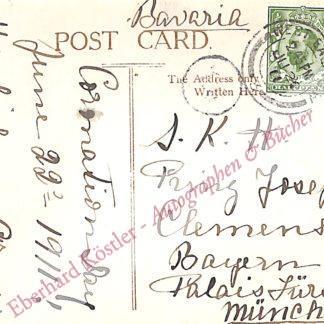 Bavaria
POST CARD.
The Address only
Written Here
S. K. H.
Prinz Josef
Clemens
Bayern
Palais Für
Münch
Coronation day
June 22d 1911.
Eberhard Köstler - Autographen & Bücher